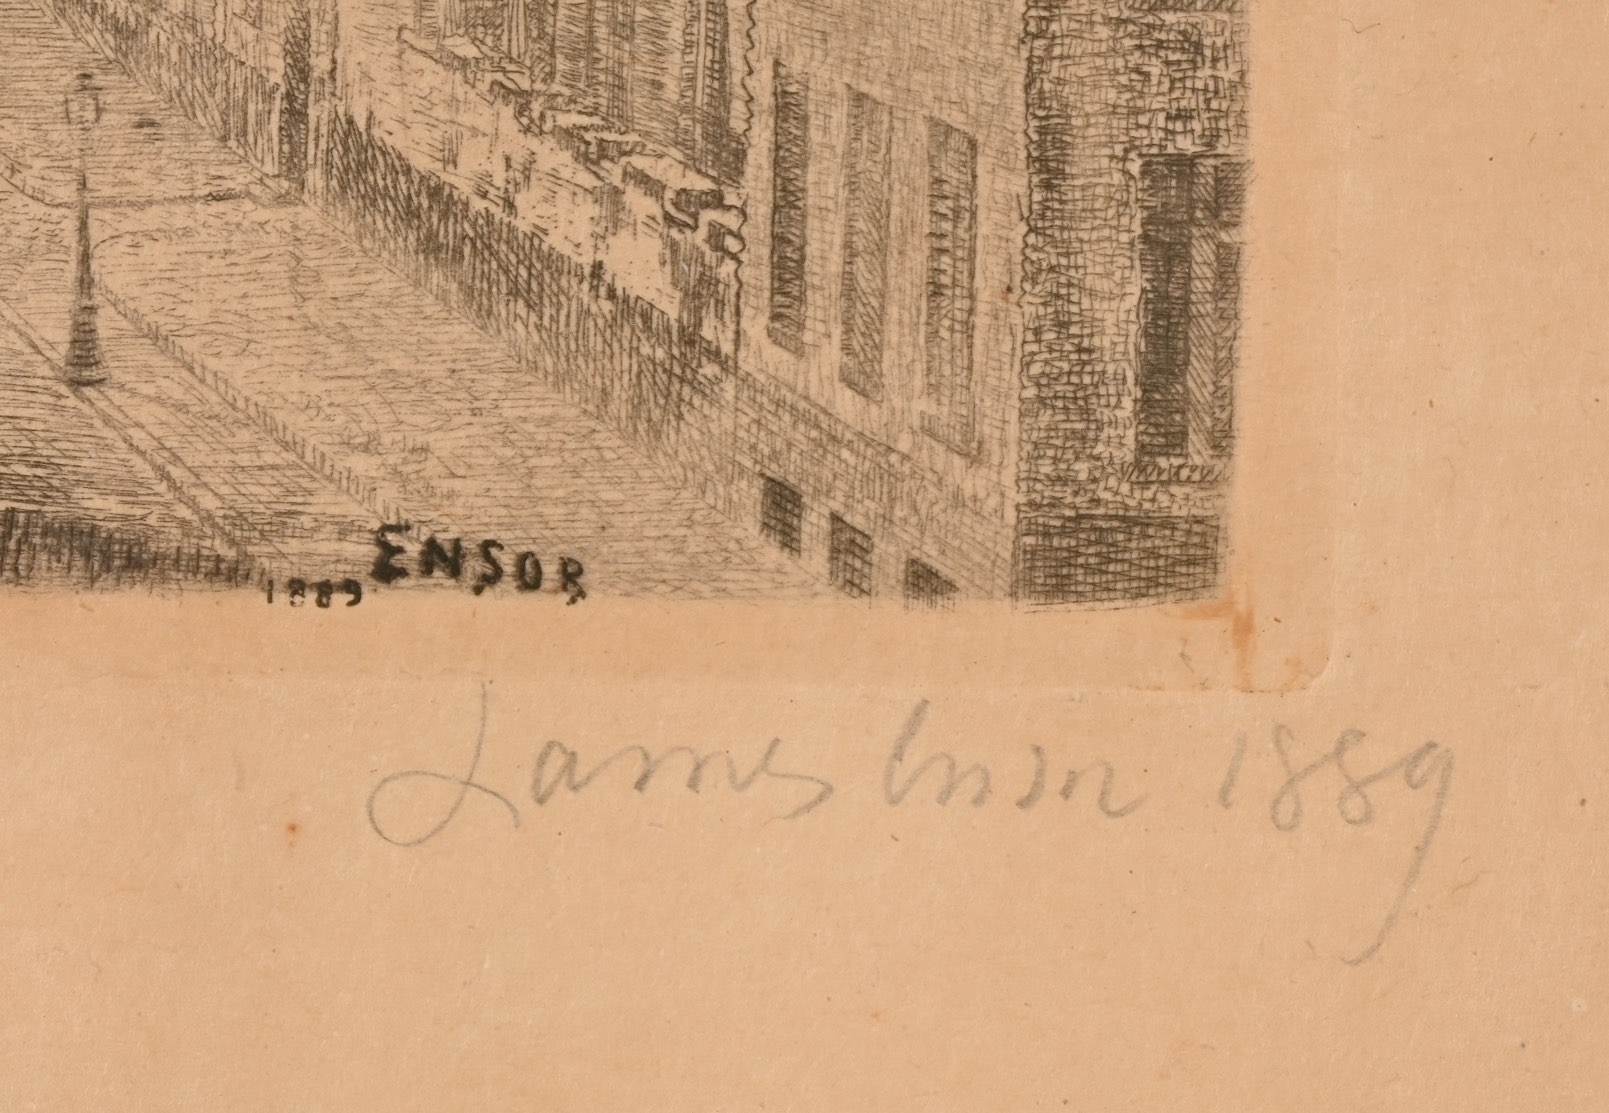 ENSOR
1889
James Ensor 1889